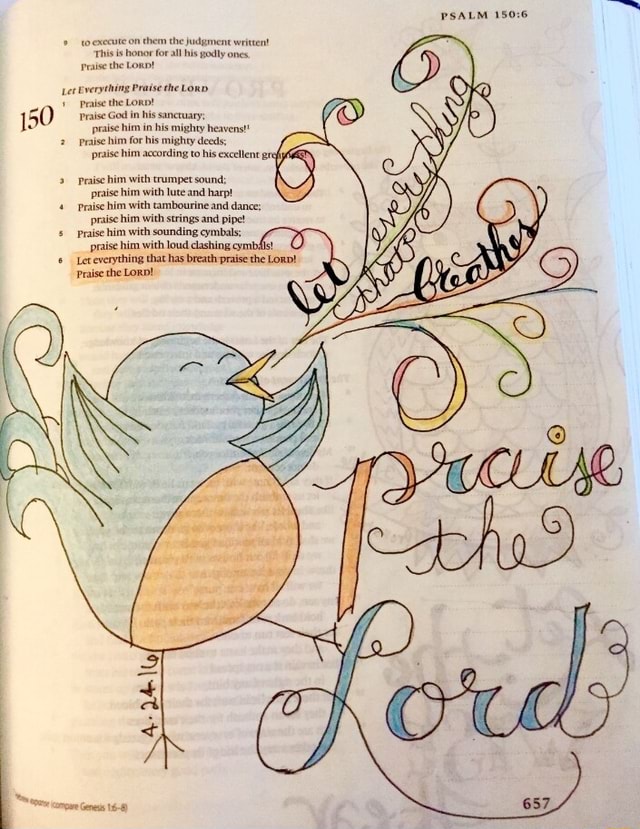 PSALM 150:6
9 to execute on them the judgment written!
This is honor for all his godly ones.
Praise the LORD!
Let Everything Praise the LORD
150
1 Praise the LORD!
Praise God in his sanctuary;
praise him in his mighty heavens!1
2 Praise him for his mighty deeds;
praise him according to his excellent greatness!
3 Praise him with trumpet sound;
praise him with lute and harp!
4 Praise him with tambourine and dance;
praise him with strings and pipe!
5 Praise him with sounding cymbals;
praise him with loud clashing cymbals!
6 Let everything that has breath praise the LORD!
Praise the LORD!
let everything
that
breathes
praise
the
Lord
4.24.16
expanse (compare Genesis 1:6–8)
657